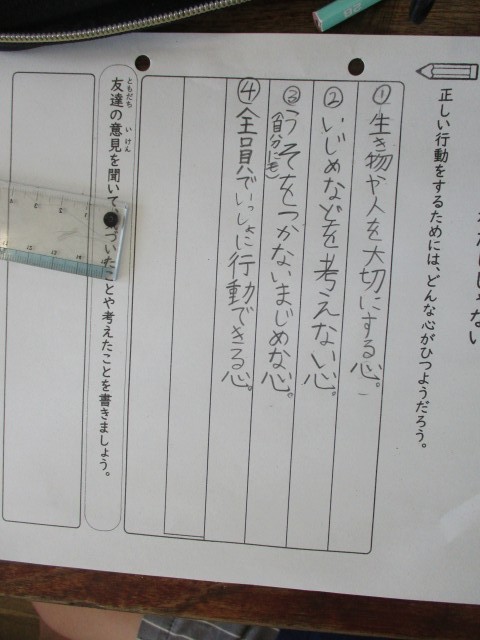 かんがえてみない
正しい行動をするためには、どんな心がひつようだろう。
①生き物や人を大切にする心。
②いじめなどを考えない心。
③うそをつかないまじめな心。
(自分にも)
④全員でいっしょに行動できる心。
友達の意見を聞いて、気づいたことや考えたことを書きましょう。
ともだち
いけん